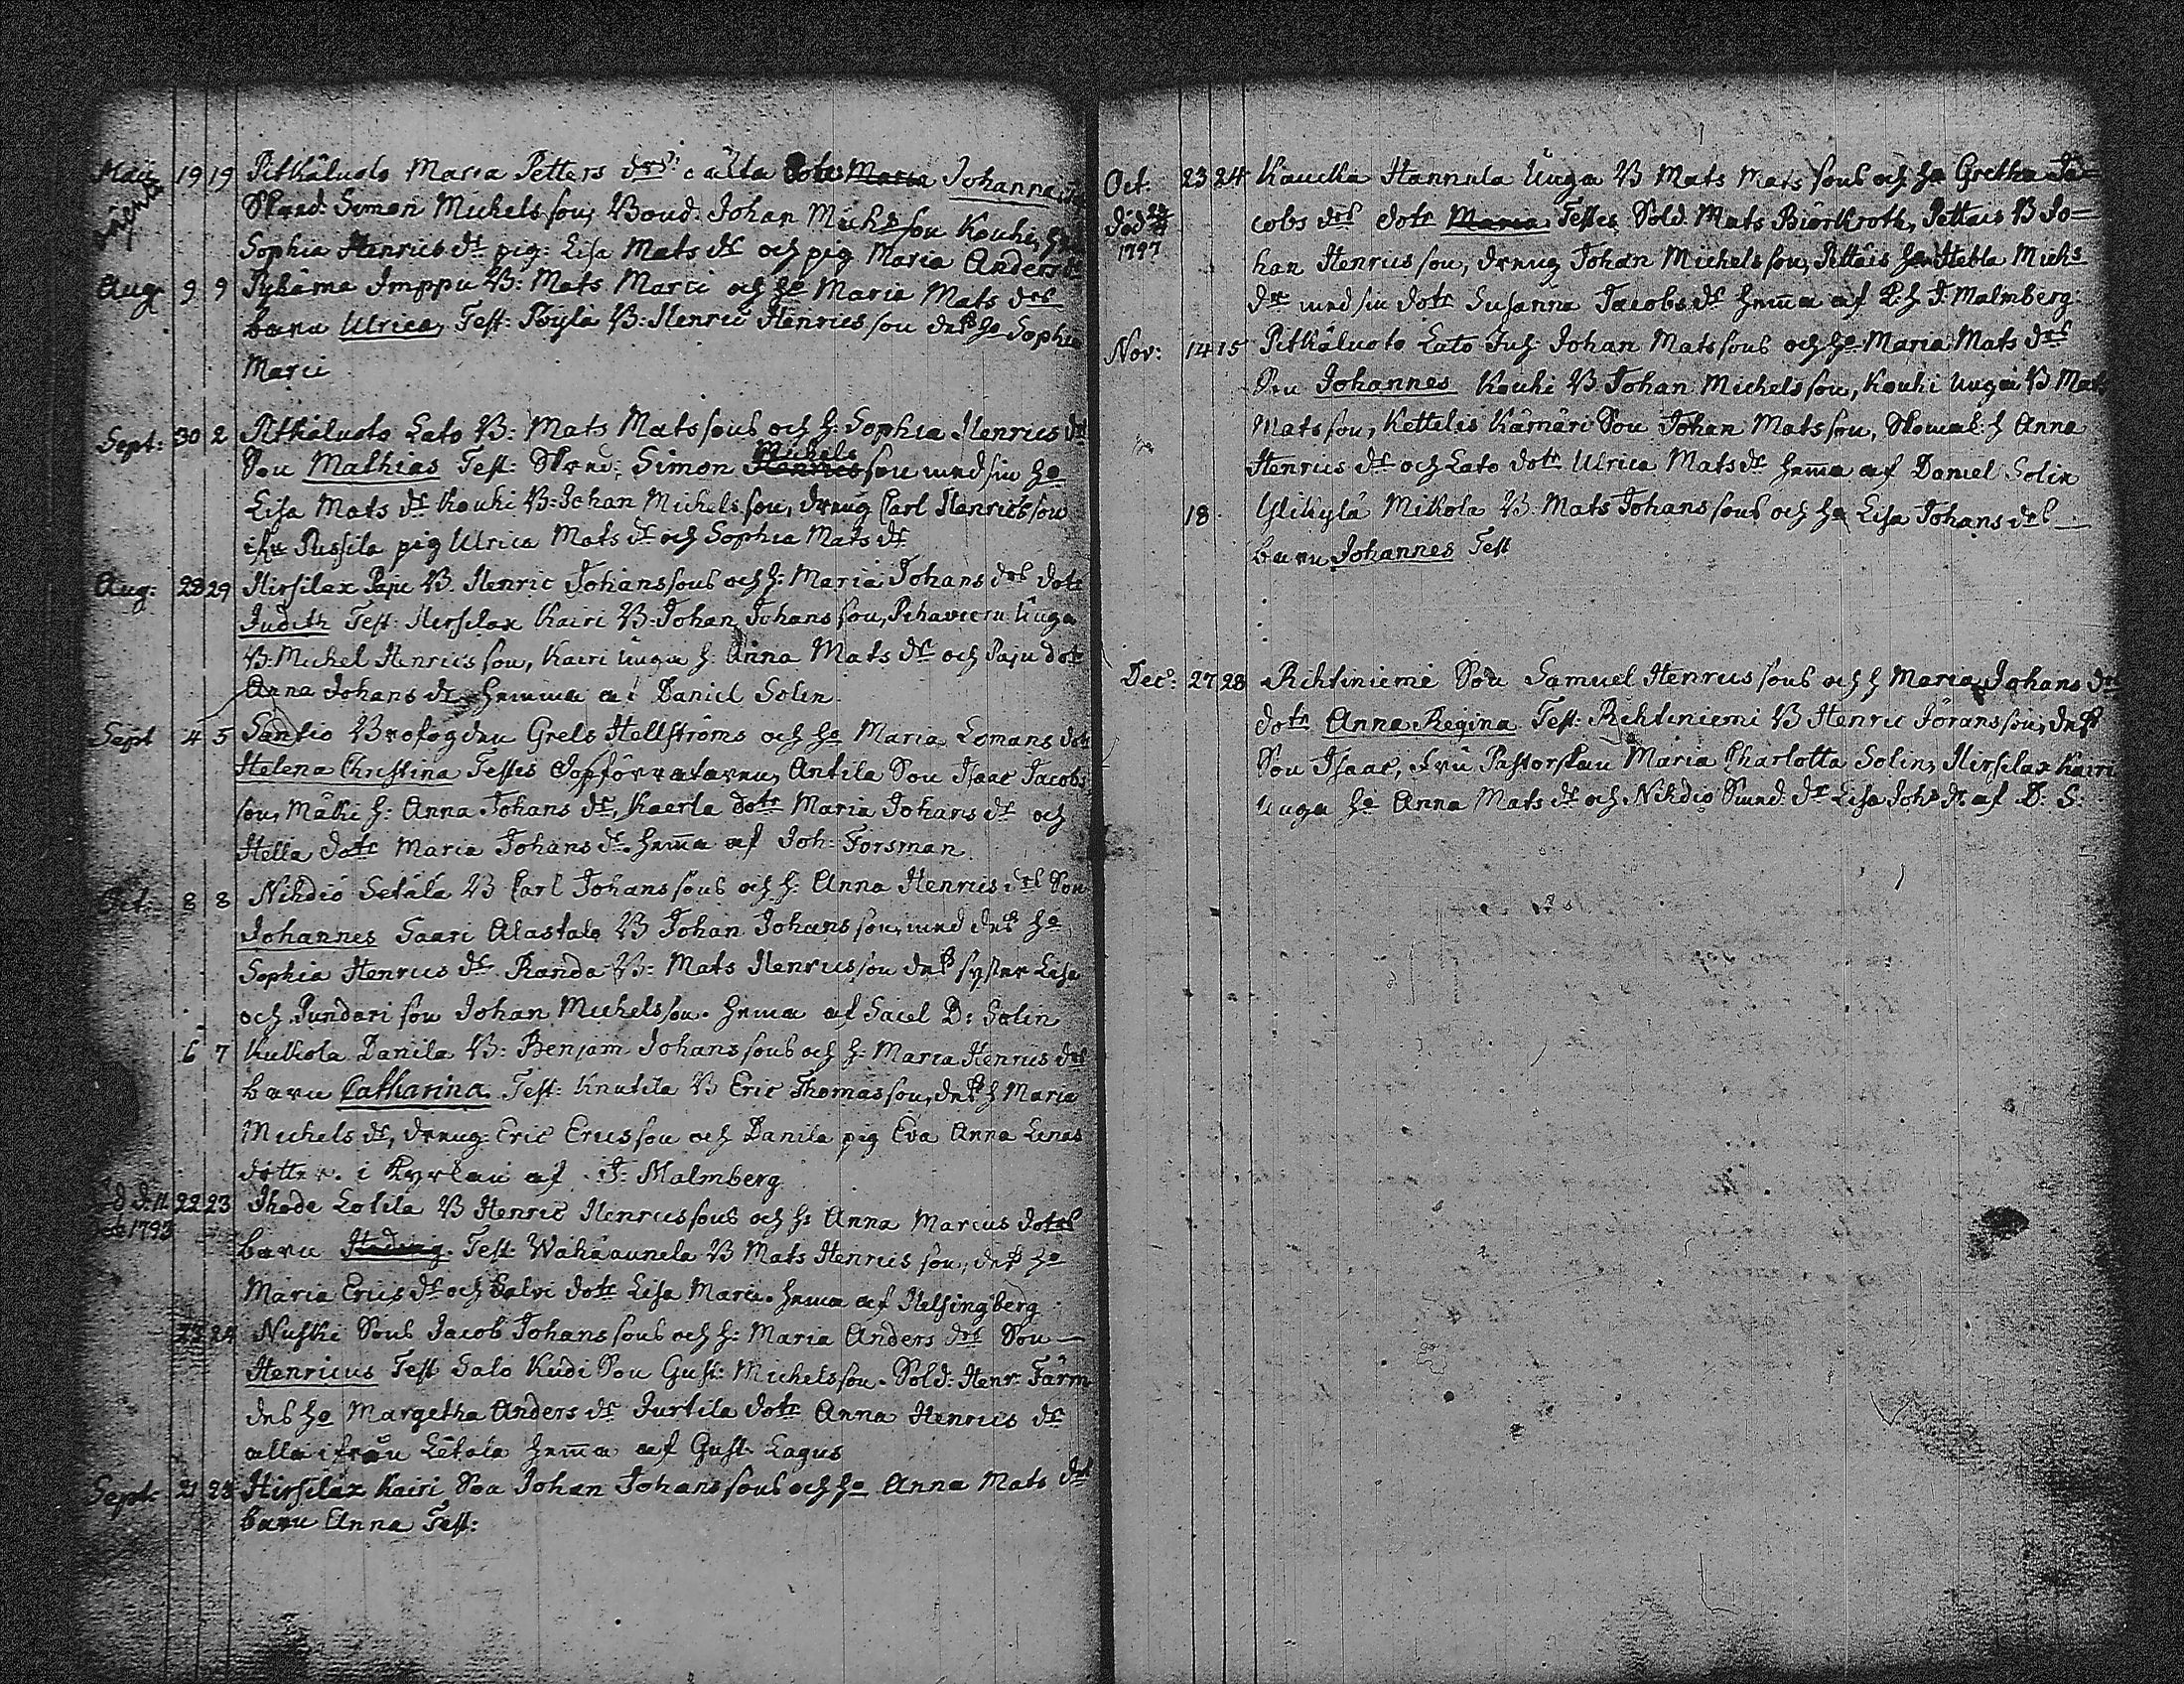 Maii 19 19 Pitkäluoto Maria Petters drs oäkta dotr Maria Johanna
Skred: Simon Michels son, Bond. Johan Michs son Kouhi,
Sophia Henrics dr pig: Lisa Mats dr och pig Maria Anders dr
Aug: 9 9 Pyhäma Imppu B: Mats Marci och ho Maria Mats drs
barn Ulrica, Test: Röylä B: Henric Henrics son dess ho Sophia
Marci
Sept: 30 2 Pitkäluoto Lato B: Mats Mats sons och h: Sophia Henrics drs
Son Mathias Test: Skred: Simon Henrics Michels son med sin ho
Lisa Mats dr Kouhi B: Johan Michels son, dreng Carl Henrics son
ifrn Pussila pig Ulrica Mats dr och Sophia Mats dr
Aug: 28 29 Hirsilax Paju B. Henric Johans sons och h: Maria Johans drs dotr
Judith Test: Hirsilax Kairi B: Johan Johans son, Pihavieru Unga
B: Michel Henrics son, Kairi unga h: Anna Mats dr och Paju dotr
Anna Johans dr hemma af Daniel Solin
Sept 4 5 Santio Brofogden Grels Hellströms och ho Maria Lomans dotr
Helena Christina Testes Antila Son Isaac Jacobs
son, Mäki h: Anna Johans dr, Kaerla dotr Maria Johans dr och
Hella dotr Maria Johans dr. hemma af Joh: Forsman
Oct: 8 8 Nihdiö Setälä B Carl Johans sons och h: Anna Henrics drs Son
Johannes Saari Alastalo B Johan Johans son, med dess ho
Sophia Henrics dr. Randa B: Mats Henrics son dess syster Lisa
och Pundari son Johan Michels son. hemma af Sacel D: Solin
6 7 Kukola Danila B: Benjam Johans sons och h: Maria Henrics drs
barn Catharina. Test: Knutila B Eric Thomas son, dess h Maria
Michels dr, dreng: Eric Erics son och Danila pig Eva Anna Lenas
dotter. i Kyrkan af J: Malmberg
1793 22 23 Ihode Lolila B Henric Henrics sons och h: Anna Marcus dotrs
barn Hedvig. Test: Wähäaunela B Mats Henrics son, dess ho
Maria Erics dr och dotr Lisa Marci. hemma af Helsingberg
24 Nuhki Sons Jacob Johans sons och h: Maria Anders drs Son
Henricus Test Salo Kudi Son Gust: Michels son. Sold: Henr: Färm
dess ho Margetha Anders dr Jurtila dotr Anna Henrics dr
alla ifrån Letala hemma af Gust. Lagus
Sept: 21 23 Hirsilax Kairi Son Johan Johans sons och ho Anna Mats drs
barn Anna Test:
Oct. 23 24 Kaucka Hannula Unga B Mats Mats sons och ho Gretha Ja=
död 1797 cobs drs dotr Maria Testes Sold. Mats Biörkroth, Pettais B Jo=
han Henrics son, dreng Johan Michels son, Pettäis ho Hebla Michs
dr med sin dotr Susanna Jacobs dr hemma af J: Malmberg
Nov: 14 15 Pitkäluoto Lato Inh Johan Mats sons och ho Maria Mats drs
Son Johannes Kouhi B. Johan Michels son, Kouhi unga B Mats
Mats son, Kettelis Kämäri Son Johan Mats son, Skomak: h Anna
Henrics dr och Lato dotr Ulrica Mats dr hemma af Daniel Solin
18 Ylikylä Mikola B. Mats Johans sons och ho Lisa Johans drs
barn Johannes Test
Dec: 27 28 Rihtniemi Son Samuel Henrics sons och h Maria Johans drs
dotr Anna Regina Test: Rihtniemi B Henric Jörans son, dess
Son Isaac, fru Pastorskan Maria Charlotta Solin, Hirsilax Kairi
unga ho Anna Mats dr och Nihdiö dr Lisa Johs dr af D: S: